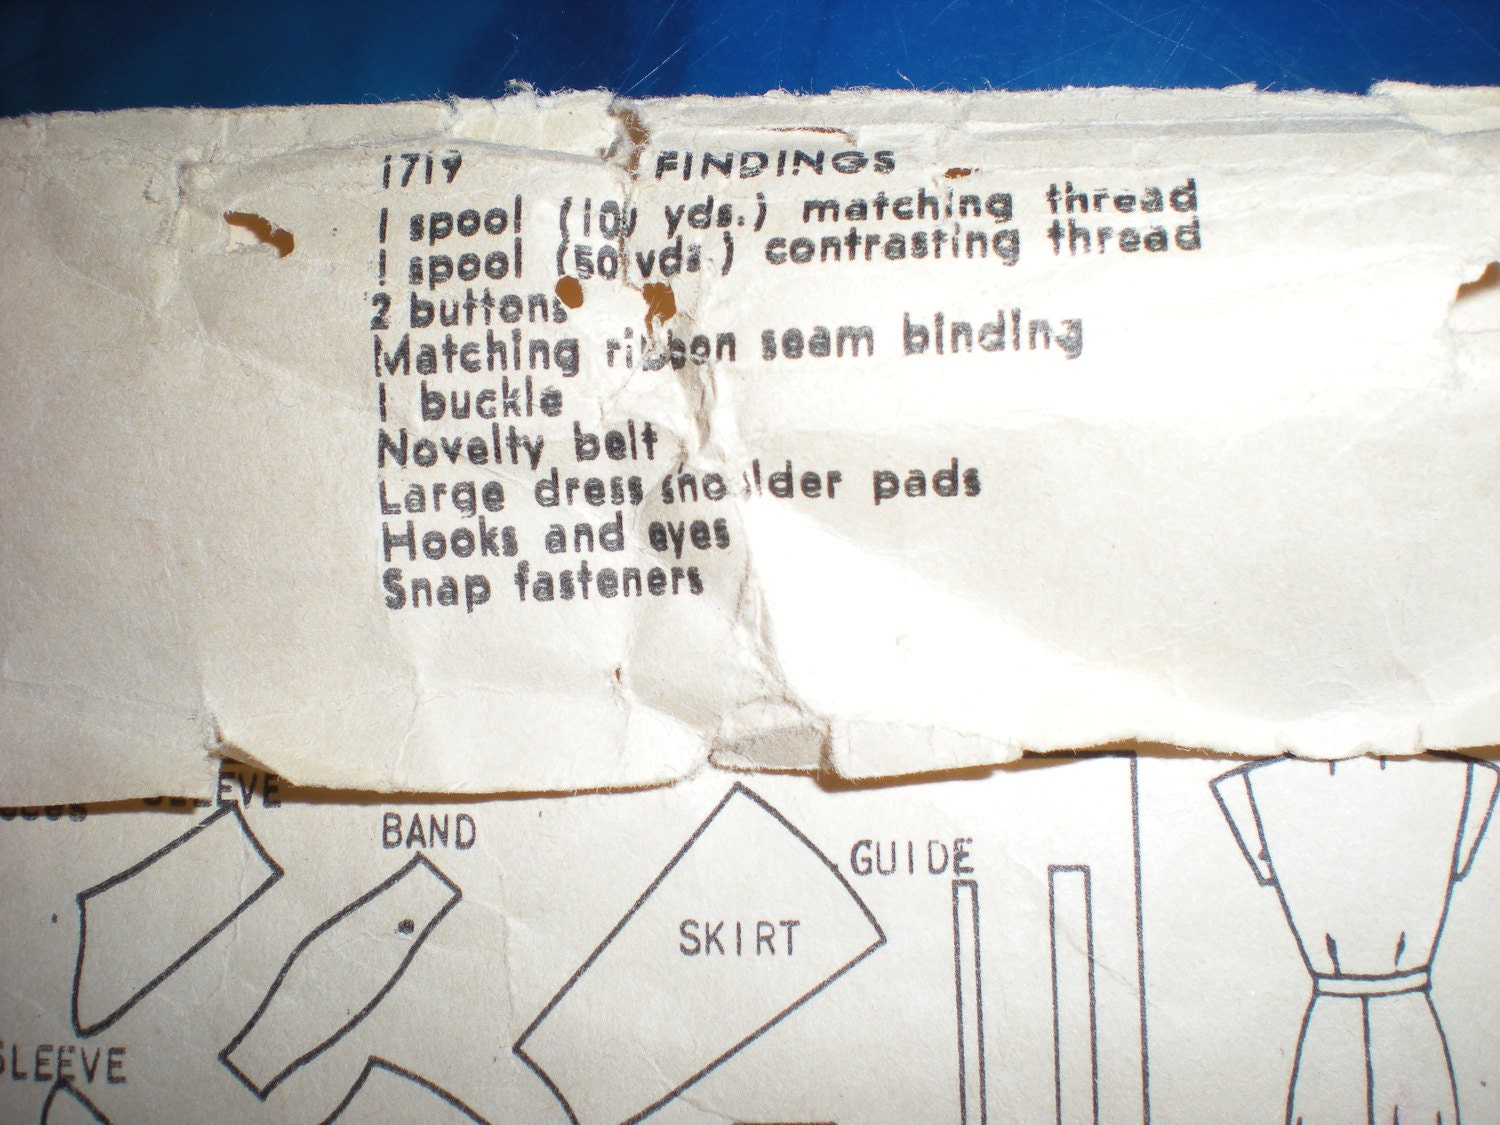 1719 FINDINGS
1 spool (100 yds.) matching thread
1 spool (50 yds.) contrasting thread
2 buttons
Matching ribbon seam binding
1 buckle
Novelty belt
Large dress shoulder pads
Hooks and eyes
Snap fasteners
SLEEVE
BAND
GUIDE
SKIRT
SLEEVE